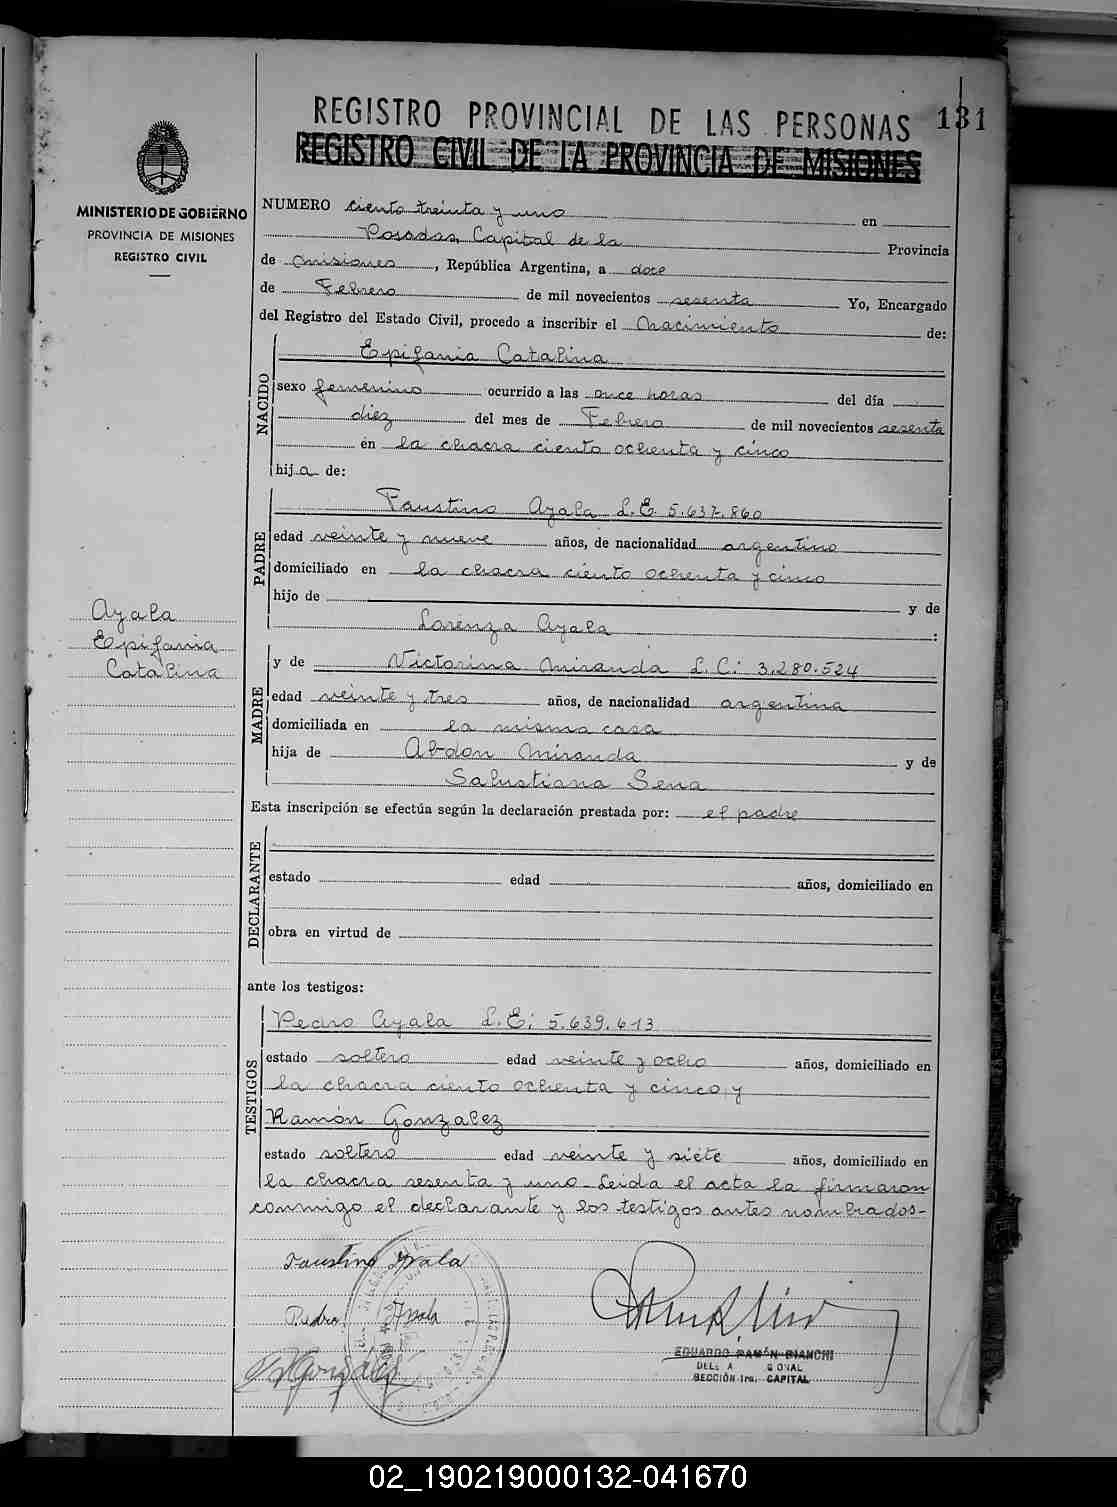 REGISTRO PROVINCIAL DE LAS PERSONAS
131
REGISTRO CIVIL DE LA PROVINCIA DE MISIONES
MINISTERIO DE GOBIERNO
PROVINCIA DE MISIONES
REGISTRO CIVIL
NUMERO ciento treinta y uno en
Posadas, Capital de la Provincia
de misiones, República Argentina, a doce
de Febrero de mil novecientos sesenta Yo, Encargado
del Registro del Estado Civil, procedo a inscribir el Nacimiento de:
NACIDO
Epifania Catalina
sexo femenino ocurrido a las once horas del día
diez del mes de Febrero de mil novecientos sesenta
en la chacra ciento ochenta y cinco
hija de:
PADRE
Faustino Ayala L.E. 5.637.860
edad veinte y nueve años, de nacionalidad argentino
domiciliado en la chacra ciento ochenta y cinco
hijo de y de
Lorenza Ayala :
Ayala
Epifania
Catalina
MADRE
y de Victorina Miranda L.C: 3.280.524
edad veinte y tres años, de nacionalidad argentina
domiciliada en la misma casa
hija de Abdon Miranda y de
Salustiana Sena
Esta inscripción se efectúa según la declaración prestada por: el padre
DECLARANTE
estado edad años, domiciliado en
obra en virtud de
ante los testigos:
TESTIGOS
Pedro Ayala L.E: 5.639.613
estado soltero edad veinte y ocho años, domiciliado en
la chacra ciento ochenta y cinco, y
Ramón Gonzalez
estado soltero edad veinte y siete años, domiciliado en
la chacra sesenta y uno. Leida el acta la firmaron
conmigo el declarante y los testigos antes nombrados-
Faustino Ayala
Pedro Ayala
R Gonzalez
EDUARDO RAMÓN BIANCHI
SECCIÓN 1ra. CAPITAL
02_190219000132-041670